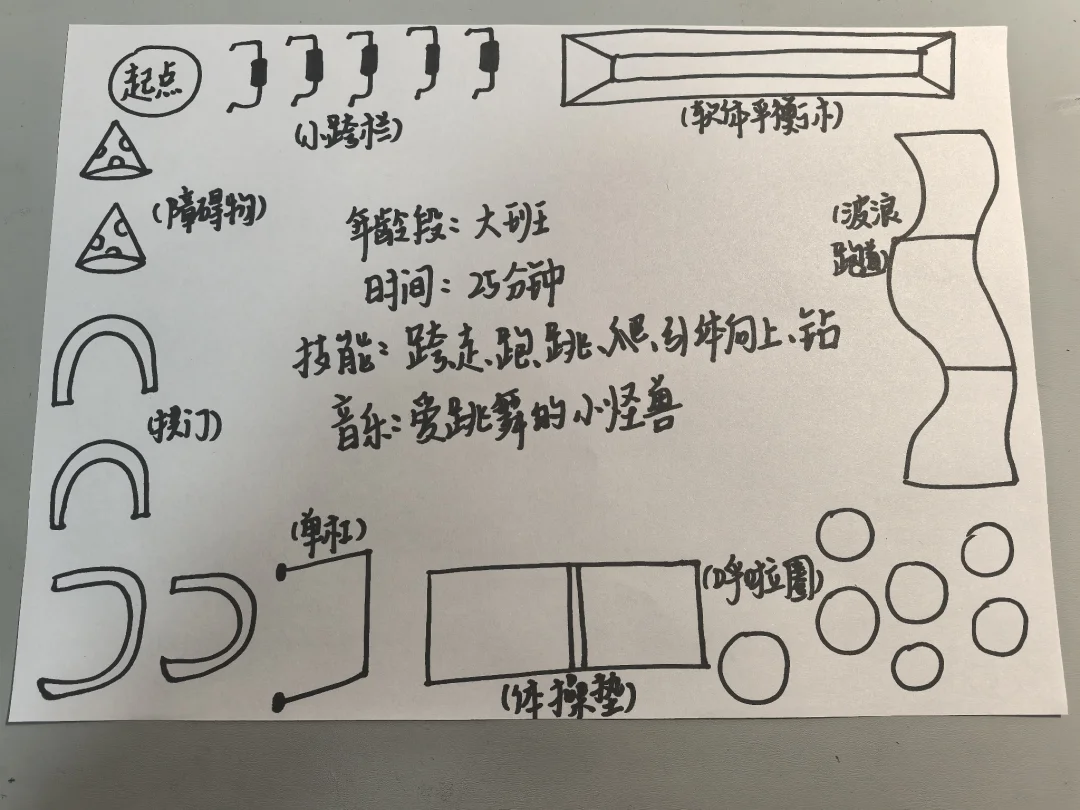 起点
(小跨栏)
(软体平衡木)
(障碍物)
(波浪
跑道)
年龄段：大班
时间：25分钟
技能：跨、走、跑、跳、爬、引体向上、钻
音乐：爱跳舞的小怪兽
(拱门)
(单杠)
(呼啦圈)
(体操垫)